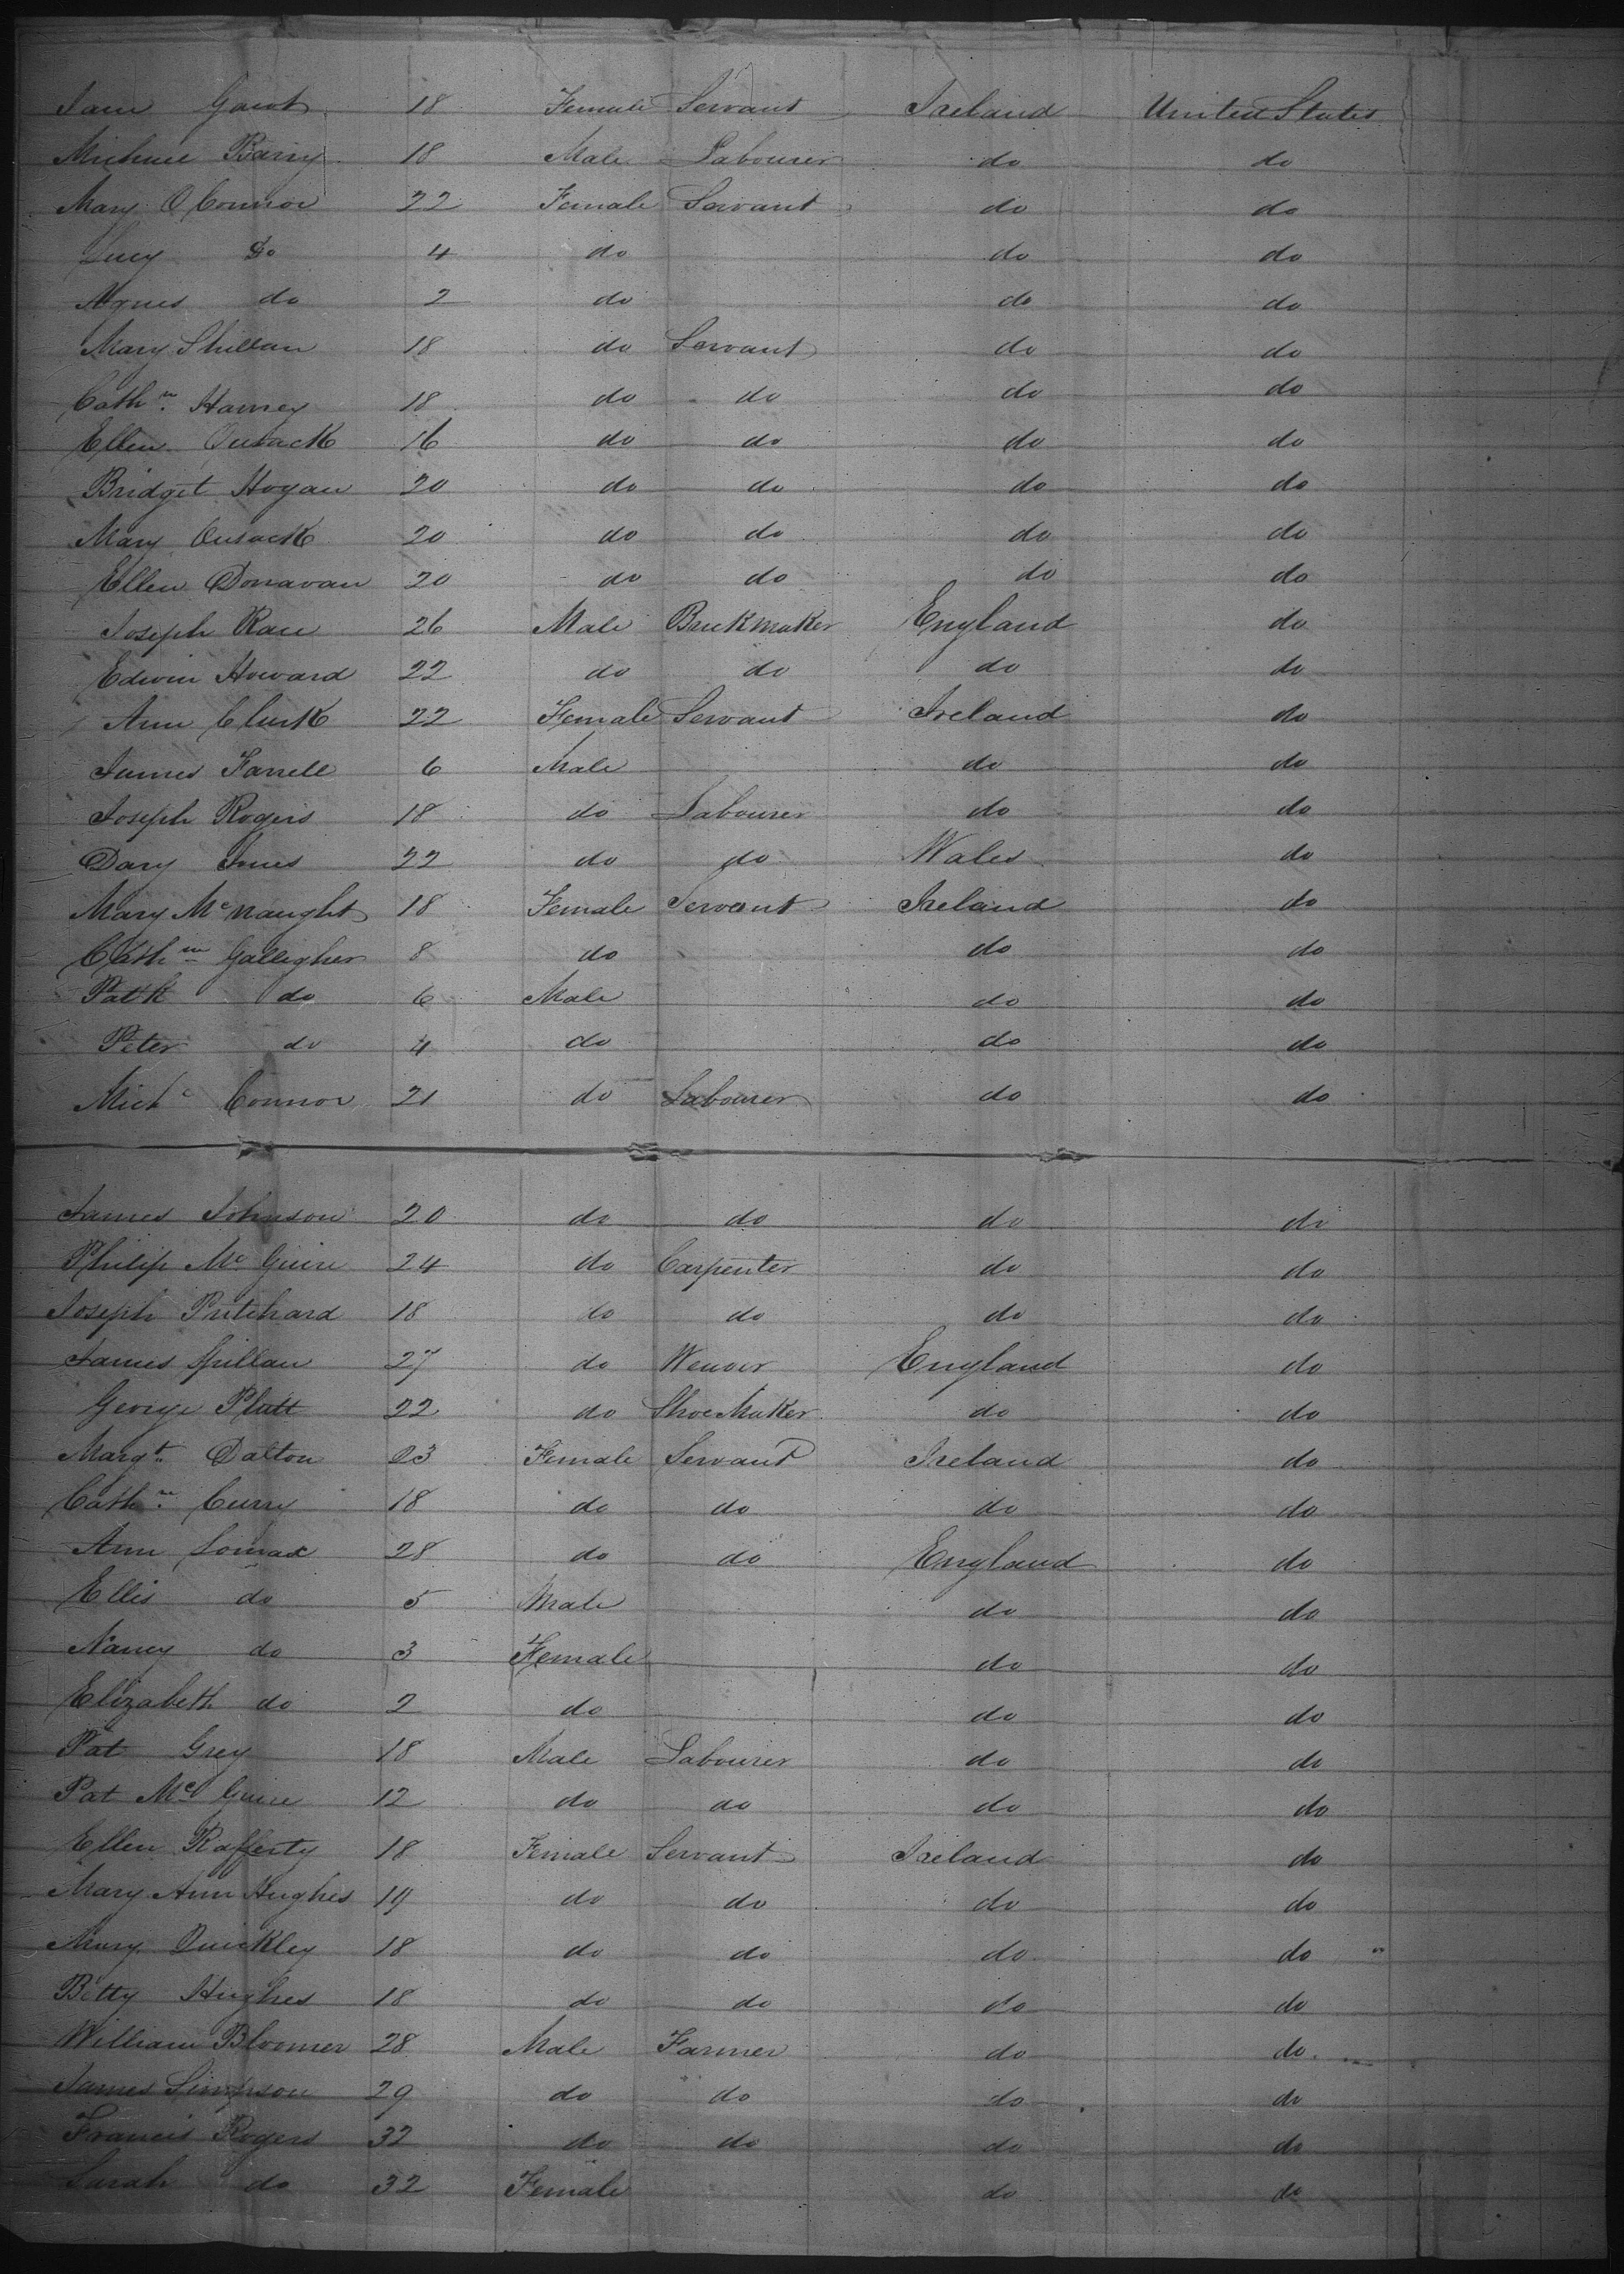 Jane 18 Female Servant Ireland United States
Michael Barry 18 Male Labourer do do
Mary O Connor 22 Female Servant do do
Lucy Do 4 do do do
Agnes do 2 do do do
Mary Shillan 18 do Servant do do
Cathne Harney 18 do do do do
Ellen Cusack 16 do do do do
Bridget Hogan 20 do do do do
Mary Cusack 20 do do do do
Ellen Donavan 20 do do do do
Joseph Race 26 Male Brickmaker England do
Edwin Howard 22 do do do do
Ann Clark 22 Female Servant Ireland do
James Farrell 6 Male do do
Joseph Rogers 18 do Labourer do do
Davy Jones 22 do do Wales do
Mary McNaught 18 Female Servant Ireland do
Cathne Gallegher 8 do do do
Patk do 6 Male do do
Peter do 4 do do do
Michl Connor 21 do Labourer do do
James Johnson 20 do do do do
Philip McGuire 24 do Carpenter do do
Joseph Pritchard 18 do do do do
James Spillan 27 do Weaver England do
George Platt 22 do ShoeMaker do do
Margt Dalton 23 Female Servant Ireland do
Cathne Curry 18 do do do do
Ann Lomax 28 do do England do
Ellis do 5 Male do do
Nancy do 3 Female do do
Elizabeth do 2 do do do
Pat Grey 18 Male Labourer do do
Pat McGuire 12 do do do do
Ellen Rafferty 18 Female Servant Ireland do
Mary Ann Hughes 19 do do do do
Mary Quickley 18 do do do do
Betty Hughes 18 do do do do
William Bloomer 28 Male Farmer do do
James Simpson 29 do do do do
Francis Rogers 32 do do do do
Sarah do 32 Female do do